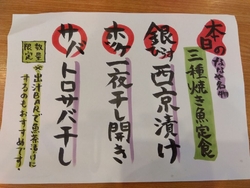 本日の
なはや名物
三種焼き魚定食
銀ひらす西京漬け
ホッケ一夜干し開き
サバトロサバ干し
数量限定
☆出汁BARで魚茶漬けに
するのもおすすめです!